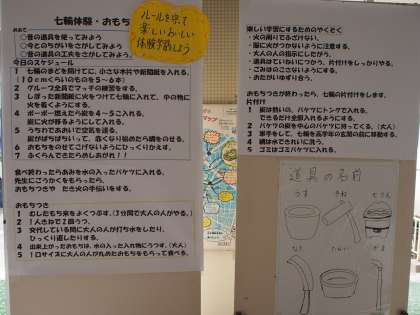 七輪体験・おもち
ルールを守って
楽しいおいしい
体験学習しよう
めあて
○昔の道具を使ってみよう
○今とのちがいをさがしてみよう
○昔の道具の工夫をさがしてみよう
今日のスケジュール
1 七輪のまどを開けてに、小さな木片や新聞紙を入れる。
(10cmくらいのものを5~6本)
2 グループ全員でマッチの練習をする。
3 しぼった新聞紙に火をつけて七輪に入れて、中の物に
火を着くようにする。
4 ボーボー燃えたら炭を4~5こ入れる。
炭に火が移るようにして入れる。
5 うちわであおいで空気を送る。
炭がぱちぱちいって、赤くなり始めたら網をのせる。
6 おもちをのせてこげないようにひっくりかえす。
7 ふくらんできたらめしあがれ!!
食べ終わったらあみを水の入ったバケツに入れる。
先生にごうかくをもらったら、
おもちつきや たき火の手伝いをする。
おもちつき
1 むしたもち米をよくつぶす。(3分間で大人の人がやる。)
2 1人きねで2回うつ。
3 交代している間に大人の人が打ち水をしたり、
ひっくり返したりする。
4 出来上がったおもちは、水の入った入れ物にうつす。(大人)
5 1口サイズに大人の人が丸めたおもちをもらって食べる。
楽しい学習にするためのやくそく
・火の周りでふざけない。
・服に火がつかないように注意する。
・大人の人の指示にしたがう。
・道具はていねいにつかい、片付けをしっかりやる。
・ごみはのこさないようにする。
・おたがいゆずり合う。
おもちつきが終わったら、七輪の片付けをします。
片付け
1 炭は熱いの、バケツにトングで入れる。
できるだけ全部入れるようにする。
2 バケツの炭を中心のバケツに持ってくる。(大人)
3 軍手をして、七輪を高学年の玄関の前に移動する。
4 網は水できれいに洗う。
5 ゴミはゴミバケツに入れる。
道具の名前
うす
きね
七りん
なた
たらい
かま